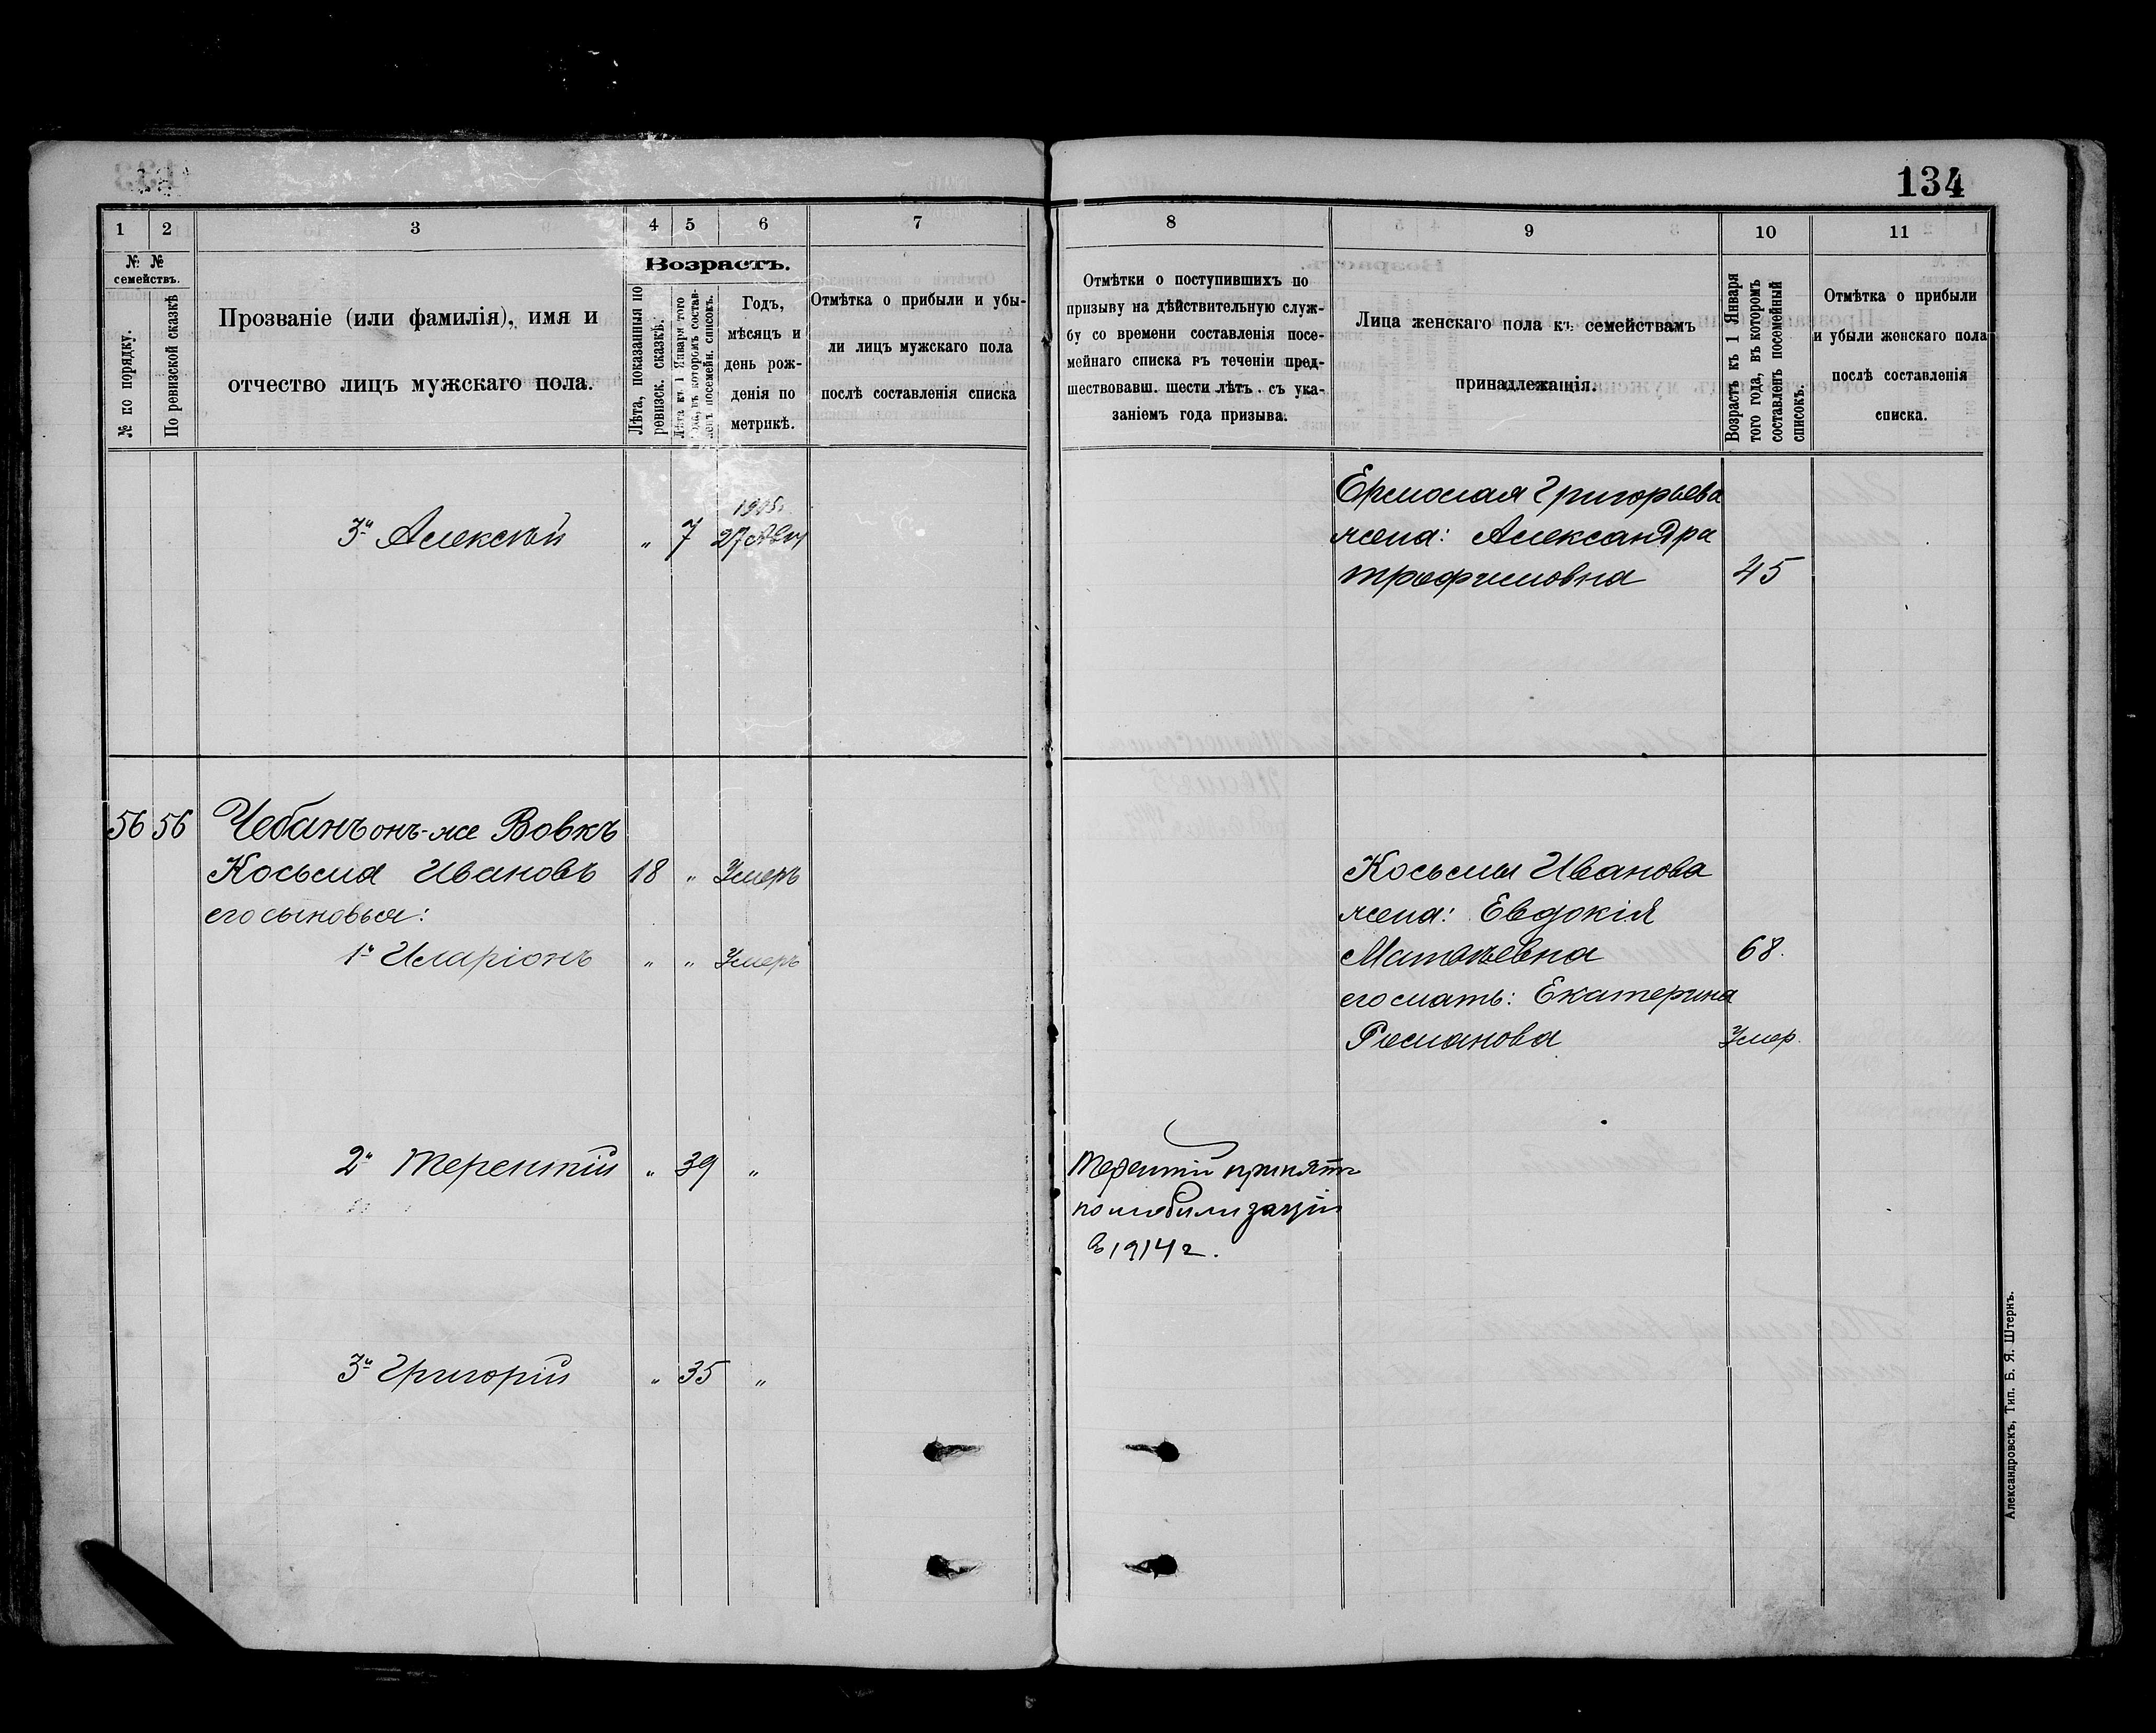 134
1
2
3
4
5
6
7
8
9
10
11
№ №
семействъ.
№ по порядку.
По ревизской сказкѣ
Прозваніе (или фамилія), имя и
отчество лицъ мужскаго пола.
Возрастъ.
Лѣта, показанныя по
ревизск. сказкѣ.
Лѣта къ 1 Января того
года, въ которомъ состав-
ленъ посемейн. списокъ.
Годъ,
мѣсяцъ и
день рож-
денія по
метрикѣ.
Отмѣтка о прибыли и убы-
ли лицъ мужскаго пола
послѣ составленія списка
Отмѣтки о поступившихъ по
призыву на дѣйствительную служ-
бу со времени составленія посе-
мейнаго списка въ теченіи пред-
шествовавш. шести лѣтъ. съ ука-
заніемъ года призыва.
Лица женскаго пола къ семействамъ
принадлежащія.
Возрастъ къ 1 Января
того года, въ которомъ
составленъ посемейный
списокъ.
Отмѣтка о прибыли
и убыли женскаго пола
послѣ составленія
списка.
3й Алексѣй " 7 1905г. 27 Авг
Ермолая Григорьева
жена: Александра
Трофимовна 45
56 56 Чебанъ онъ-же Вовкъ
Косьма Ивановъ 18 " Умеръ
его сыновья:
1й Иларіонъ " " Умеръ
2й Терентій " 39 "
3й Григорій " 35 "
Терентій принятъ
по мобилизаціи
в 1914 г.
Косьмы Иванова
жена: Евдокія
Матвѣевна 68.
его мать: Екатерина
Романова Умер.
Александровскъ, Тип. Б. Я. Штернъ.